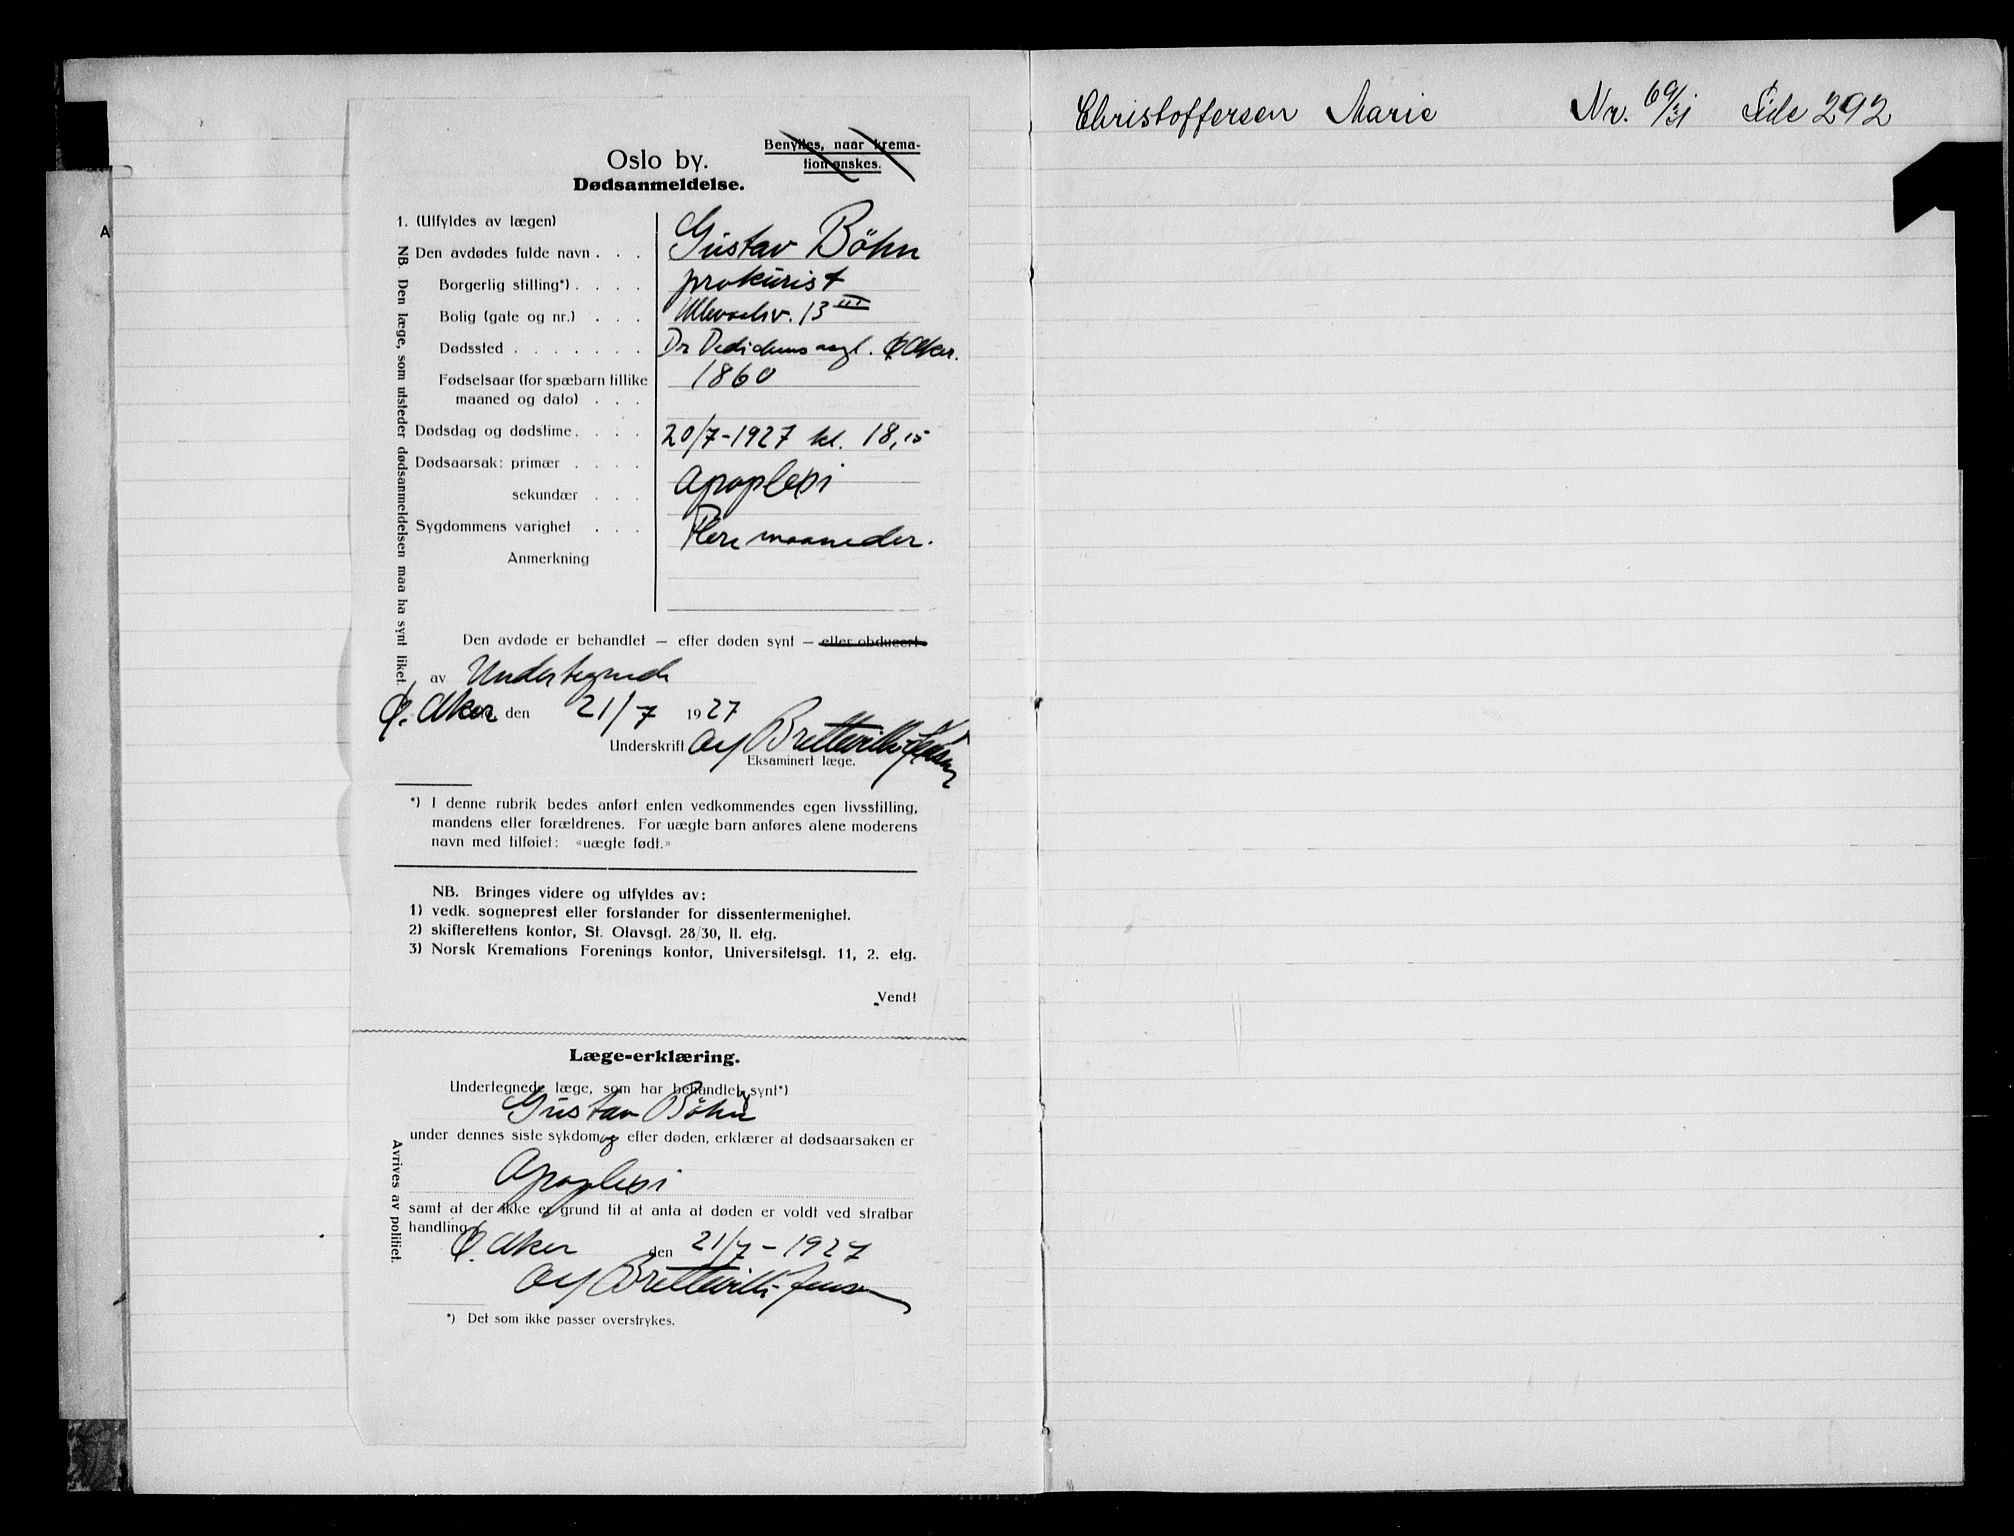 A
Benyttes, naar krema-
tion ønskes.
Oslo by.
Dødsanmeldelse.
1. (Utfyldes av lægen)
NB. Den læge, som utsteder dødsanmeldelsen maa ha synt liket.
Den avdødes fulde navn . . . Gustav Böhn
Borgerlig stilling*) . . . . prokurist
Bolig (gate og nr.) . . . Ullevaalsv. 13 III
Dødssted . . . . . . . Dr Dedichens asyl. Ø Aker.
Fødselsaar (for spæbarn tillike 1860
maaned og dato) . . .
Dødsdag og dødstime. . . . 20/7-1927 kl. 18,15
Dødsaarsak: primær . . . . Apoplexi
sekundær . . .
Sygdommens varighet . . . Flere maaneder.
Anmerkning
Den avdøde er behandlet — efter døden synt — eller obducert
av Undertegnede
Ø. Aker den 21/7 1927
Underskrift Alf Bretteville-Jensen
Eksaminert læge.
*) I denne rubrik bedes anført enten vedkommendes egen livsstilling,
mandens eller forældrenes. For uægte barn anføres alene moderens
navn med tilføiet: «uægte født.»
NB. Bringes videre og utfyldes av:
1) vedk. sogneprest eller forstander for dissentermenighet.
2) skifterettens kontor, St. Olavsgt. 28/30, II. etg.
3) Norsk Kremations Forenings kontor, Universitetsgt. 11, 2. etg.
Vend!
Læge-erklæring.
Undertegnede læge, som har behandlet og synt*)
Gustav Böhn
under dennes siste sykdom og efter døden, erklærer at dødsaarsaken er
Apoplexi
samt at der ikke er grund til at anta at døden er voldt ved strafbar
handling.
Ø. Aker den 21/7-1927
Alf Bretteville-Jensen
*) Det som ikke passer overstrykes.
Avrives av politiet.
Christoffersen Marie Nr. 69/31 Side 292